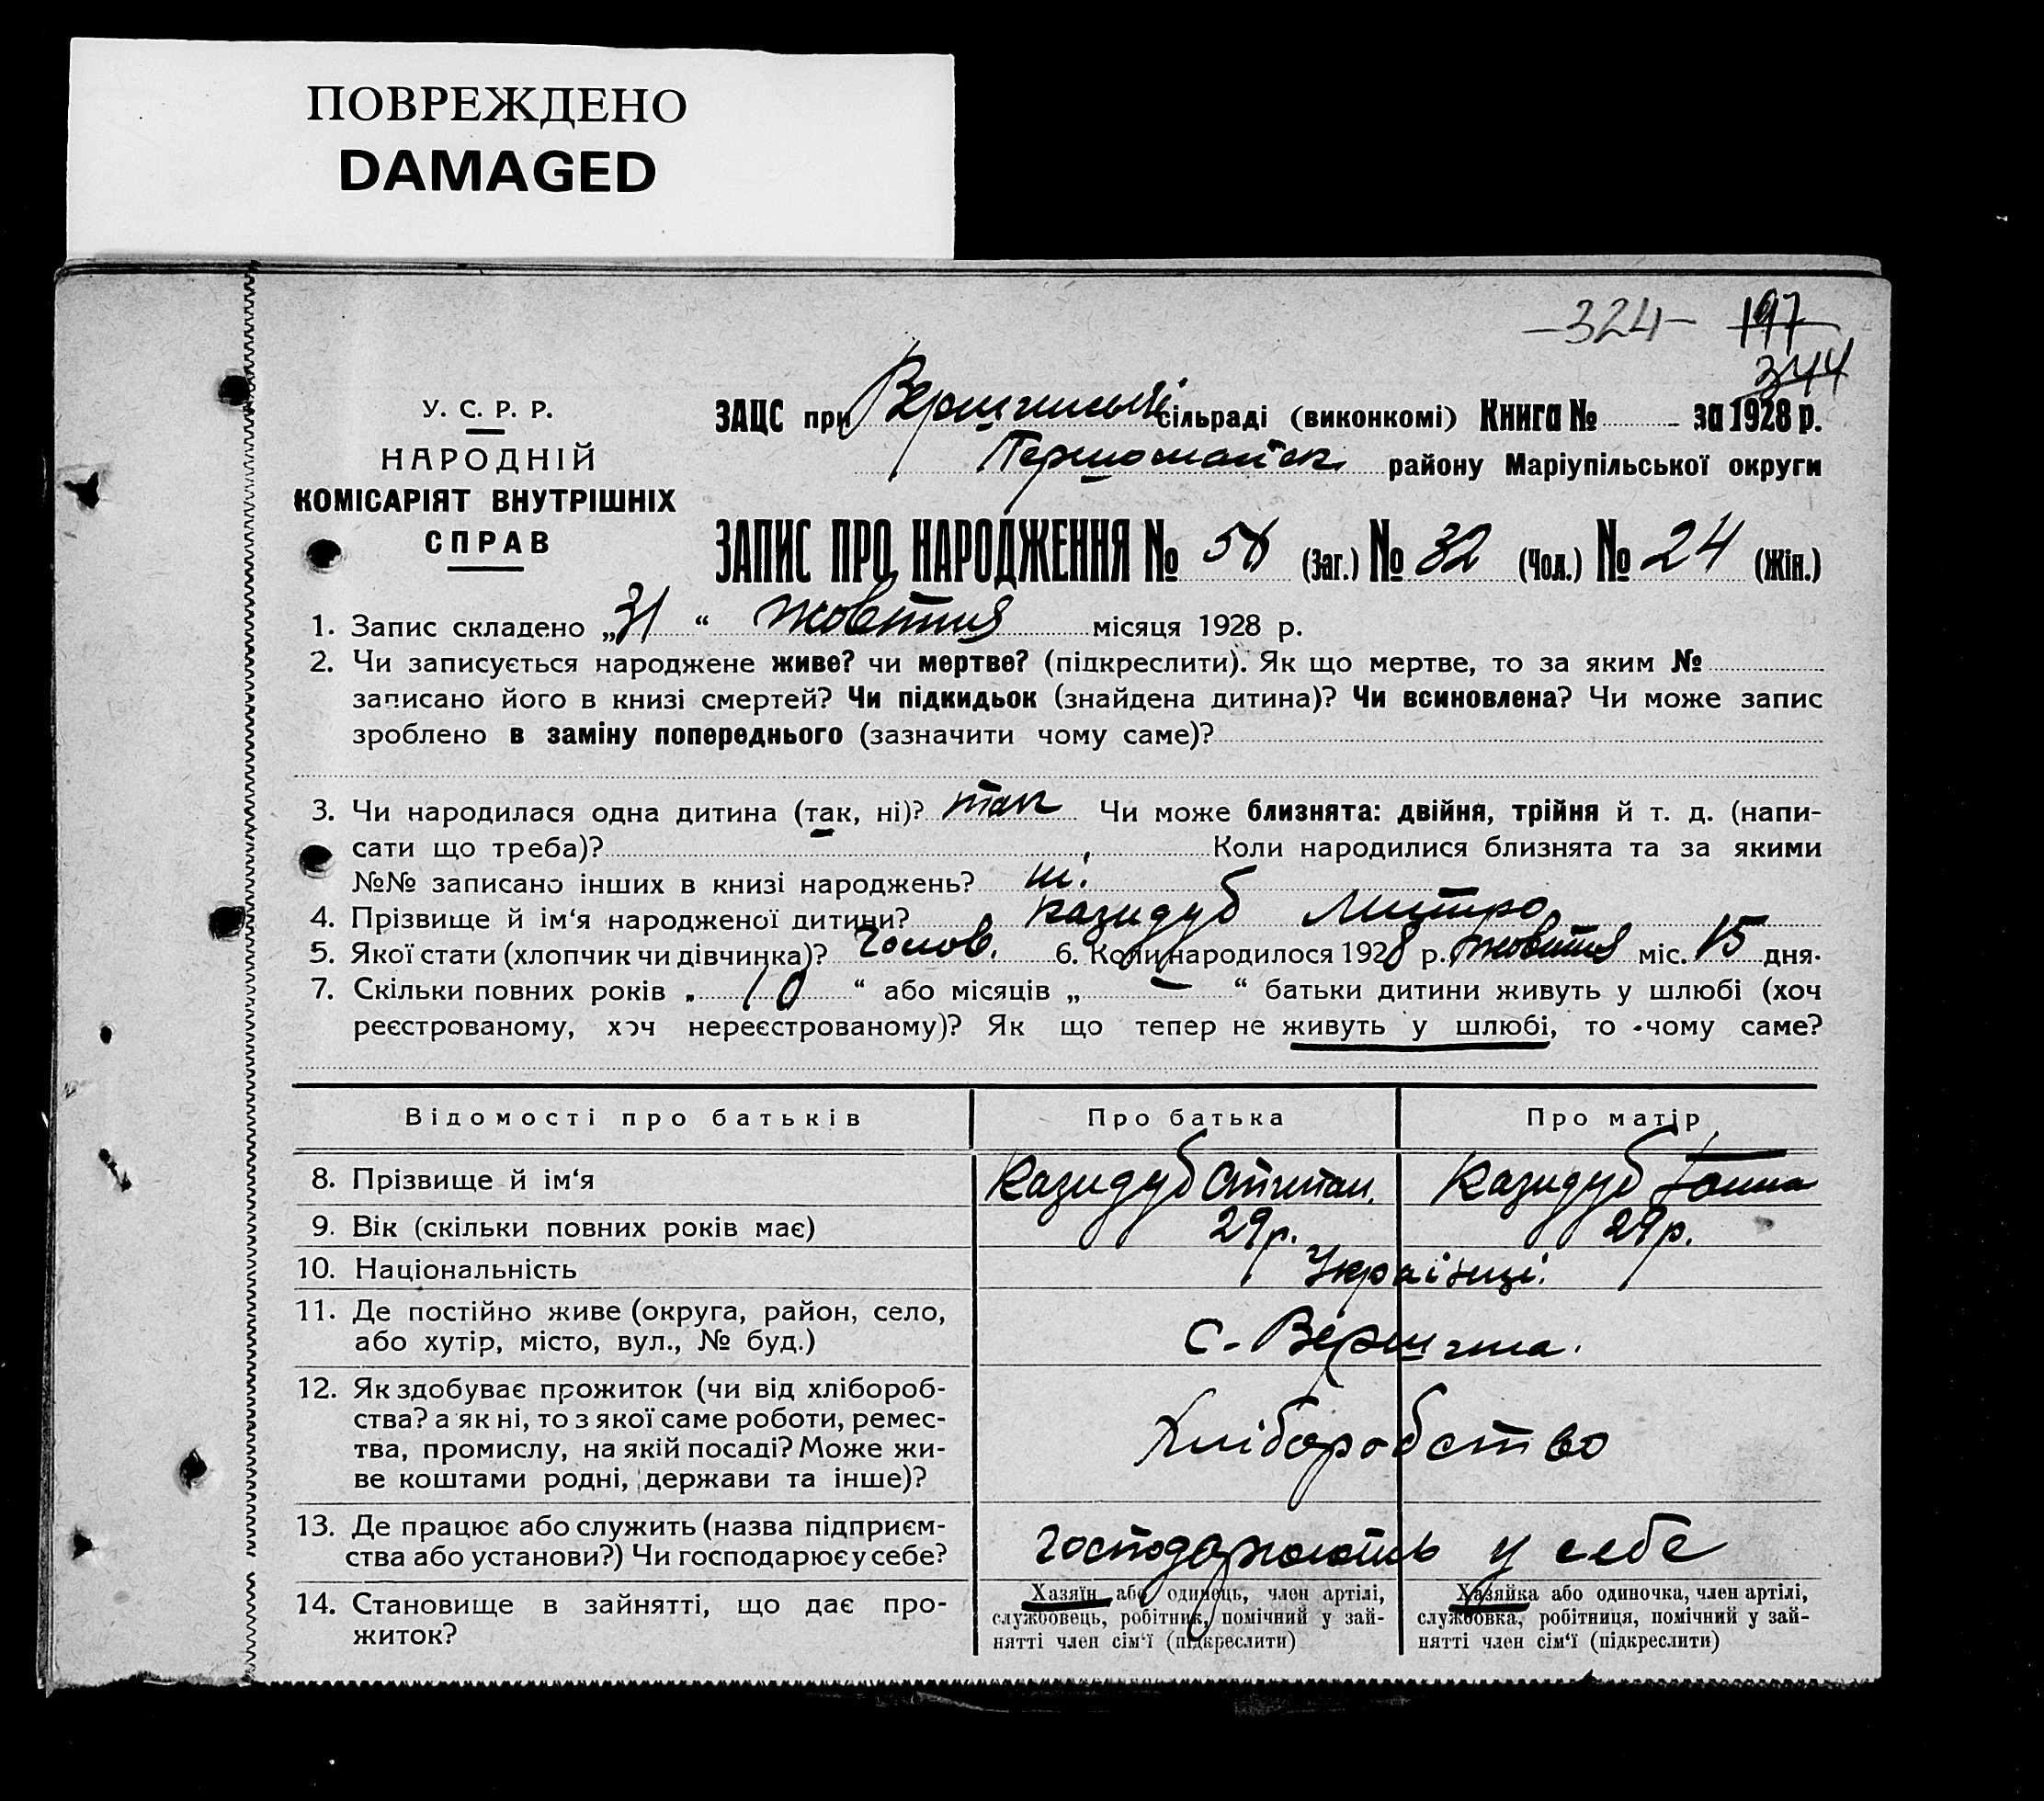 ПОВРЕЖДЕНО
DAMAGED
-324- 197
344
У. С. Р. Р.
НАРОДНІЙ
КОМІСАРІЯТ ВНУТРІШНІХ
СПРАВ
ЗАЦС при сільраді (виконкомі) Книга № за 1928 р.
Першомайськ району Маріупільської округи
ЗАПИС ПРО НАРОДЖЕННЯ № 56 (Заг.) № 32 (Чол.) № 24 (Жін.)
1. Запис складено „31“ жовтня місяця 1928 р.
2. Чи записується народжене живе? чи мертве? (підкреслити). Як що мертве, то за яким №
записано його в книзі смертей? Чи підкидьок (знайдена дитина)? Чи всиновлена? Чи може запис
зроблено в заміну попереднього (зазначити чому саме)?
3. Чи народилася одна дитина (так, ні)? так Чи може близнята: двійня, трійня й т. д. (напи-
сати що треба)? Коли народилися близнята та за якими
№№ записано інших в книзі народжень? ні.
4. Прізвище й ім‘я народженої дитини? Казидуб Митро
5. Якої стати (хлопчик чи дівчинка)? чолов. 6. Коли народилося 1928 р. жовтня міс. 15 дня.
7. Скільки повних років „ 10 “ або місяців „ — “ батьки дитини живуть у шлюбі (хоч
реєстрованому, хоч нереєстрованому)? Як що тепер не живуть у шлюбі, то чому саме?
Відомості про батьків Про батька Про матір
8. Прізвище й ім‘я Казидуб Степан. Казидуб Ганна
9. Вік (скільки повних років має) 29 р. 29 р.
10. Національність Українці.
11. Де постійно живе (округа, район, село,
або хутір, місто, вул., № буд.) С. Вершина.
12. Як здобуває прожиток (чи від хлібороб-
ства? а як ні, то з якої саме роботи, ремес-
тва, промислу, на якій посаді? Може жи-
ве коштами родні, держави та інше)? Хліборобство
13. Де працює або служить (назва підприєм-
ства або установи?) Чи господарює у себе? господарюють у себе
14. Становище в зайнятті, що дає про-
житок?
Хазяїн або одинець, член артілі,
службовець, робітник, помічний у зай-
нятті член сім‘ї (підкреслити)
Хазяйка або одиночка, член артілі,
службовка, робітниця, помічний у зай-
нятті член сім‘ї (підкреслити)